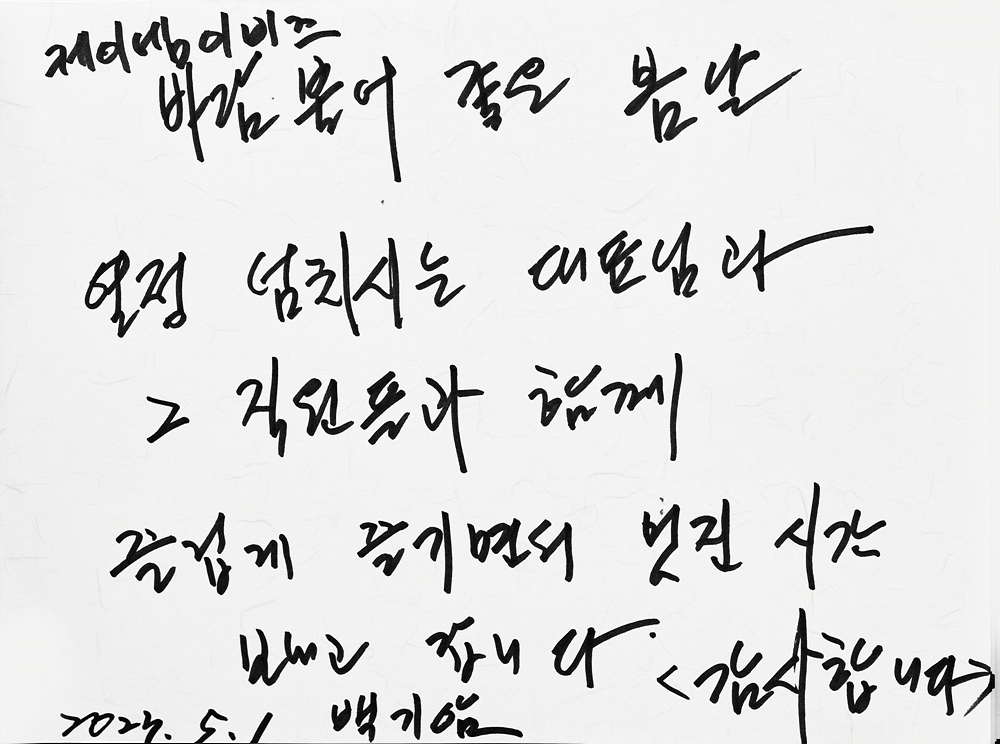 제이엠이비즈
바람불어 좋은 봄날
열정 넘치시는 대표님과
그 직원들과 함께
즐겁게 즐기면서 멋진 시간
보내고 갑니다. <감사합니다>
2023. 5. 1 백기암